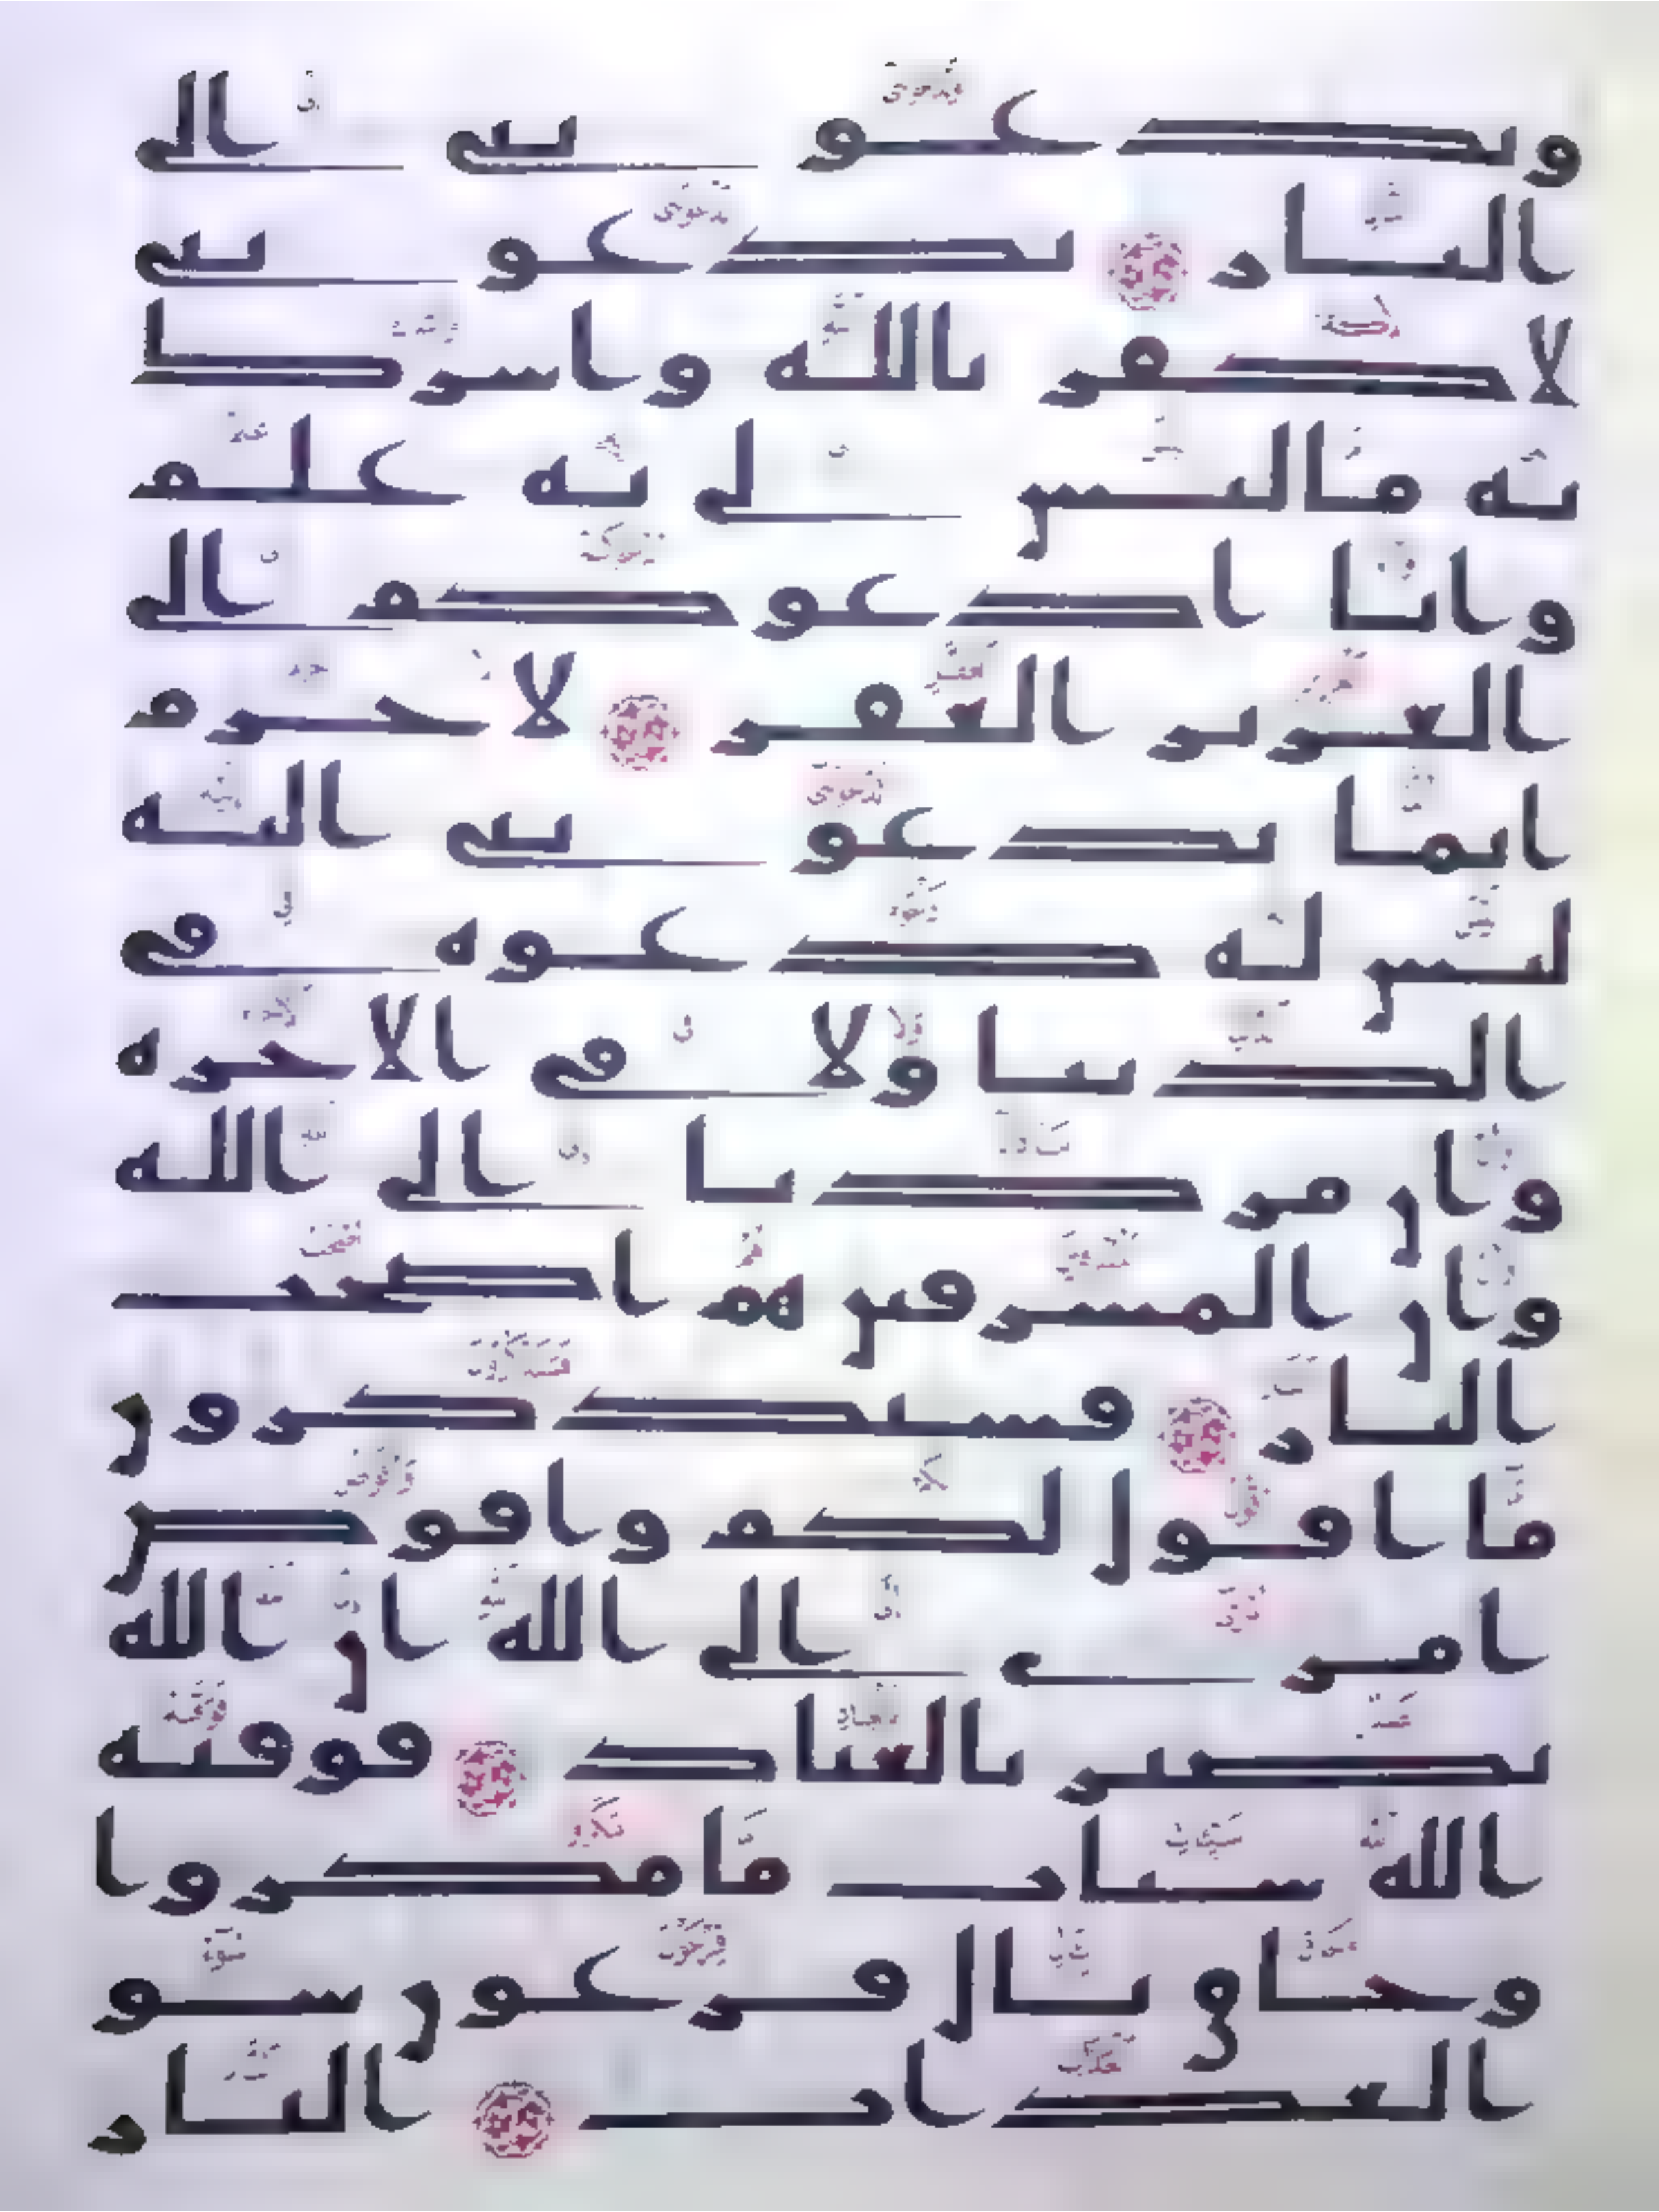 وتدعوننى الى
النار تدعوننى
لاكفر بالله واشرك
به ما ليس لى به علم
وانا ادعوكم الى
العزيز الغفر لا جرم
انما تدعوننى اليه
ليس له دعوه فى
الدنيا ولا فى الاخره
وان مردنا الى الله
وان المسرفين هم اصحب
النار فستذكرون
ما اقول لكم وافوض
امرى الى الله ان الله
بصير بالعباد فوقيه
الله سيات ما مكروا
وحاق بال فرعون سو
العذاب النار